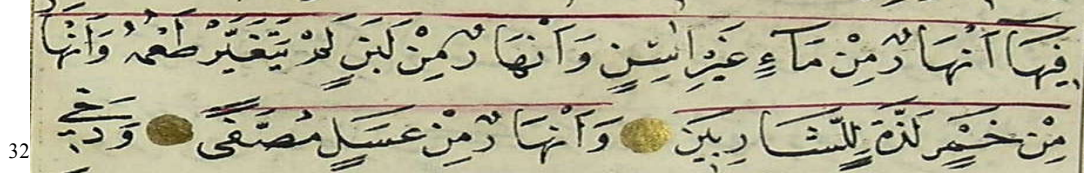 فِيهَا أَنْهَارٌ مِنْ مَاءٍ غَيْرِ اٰسِنٍ وَأَنْهَارٌ مِنْ لَبَنٍ لَمْ يَتَغَيَّرْ طَعْمُهُ وَأَنْهَا
مِنْ خَمْرٍ لَذَّةٍ لِلشَّارِبِينَ وَأَنْهَارٌ مِنْ عَسَلٍ مُصَفًّى
32